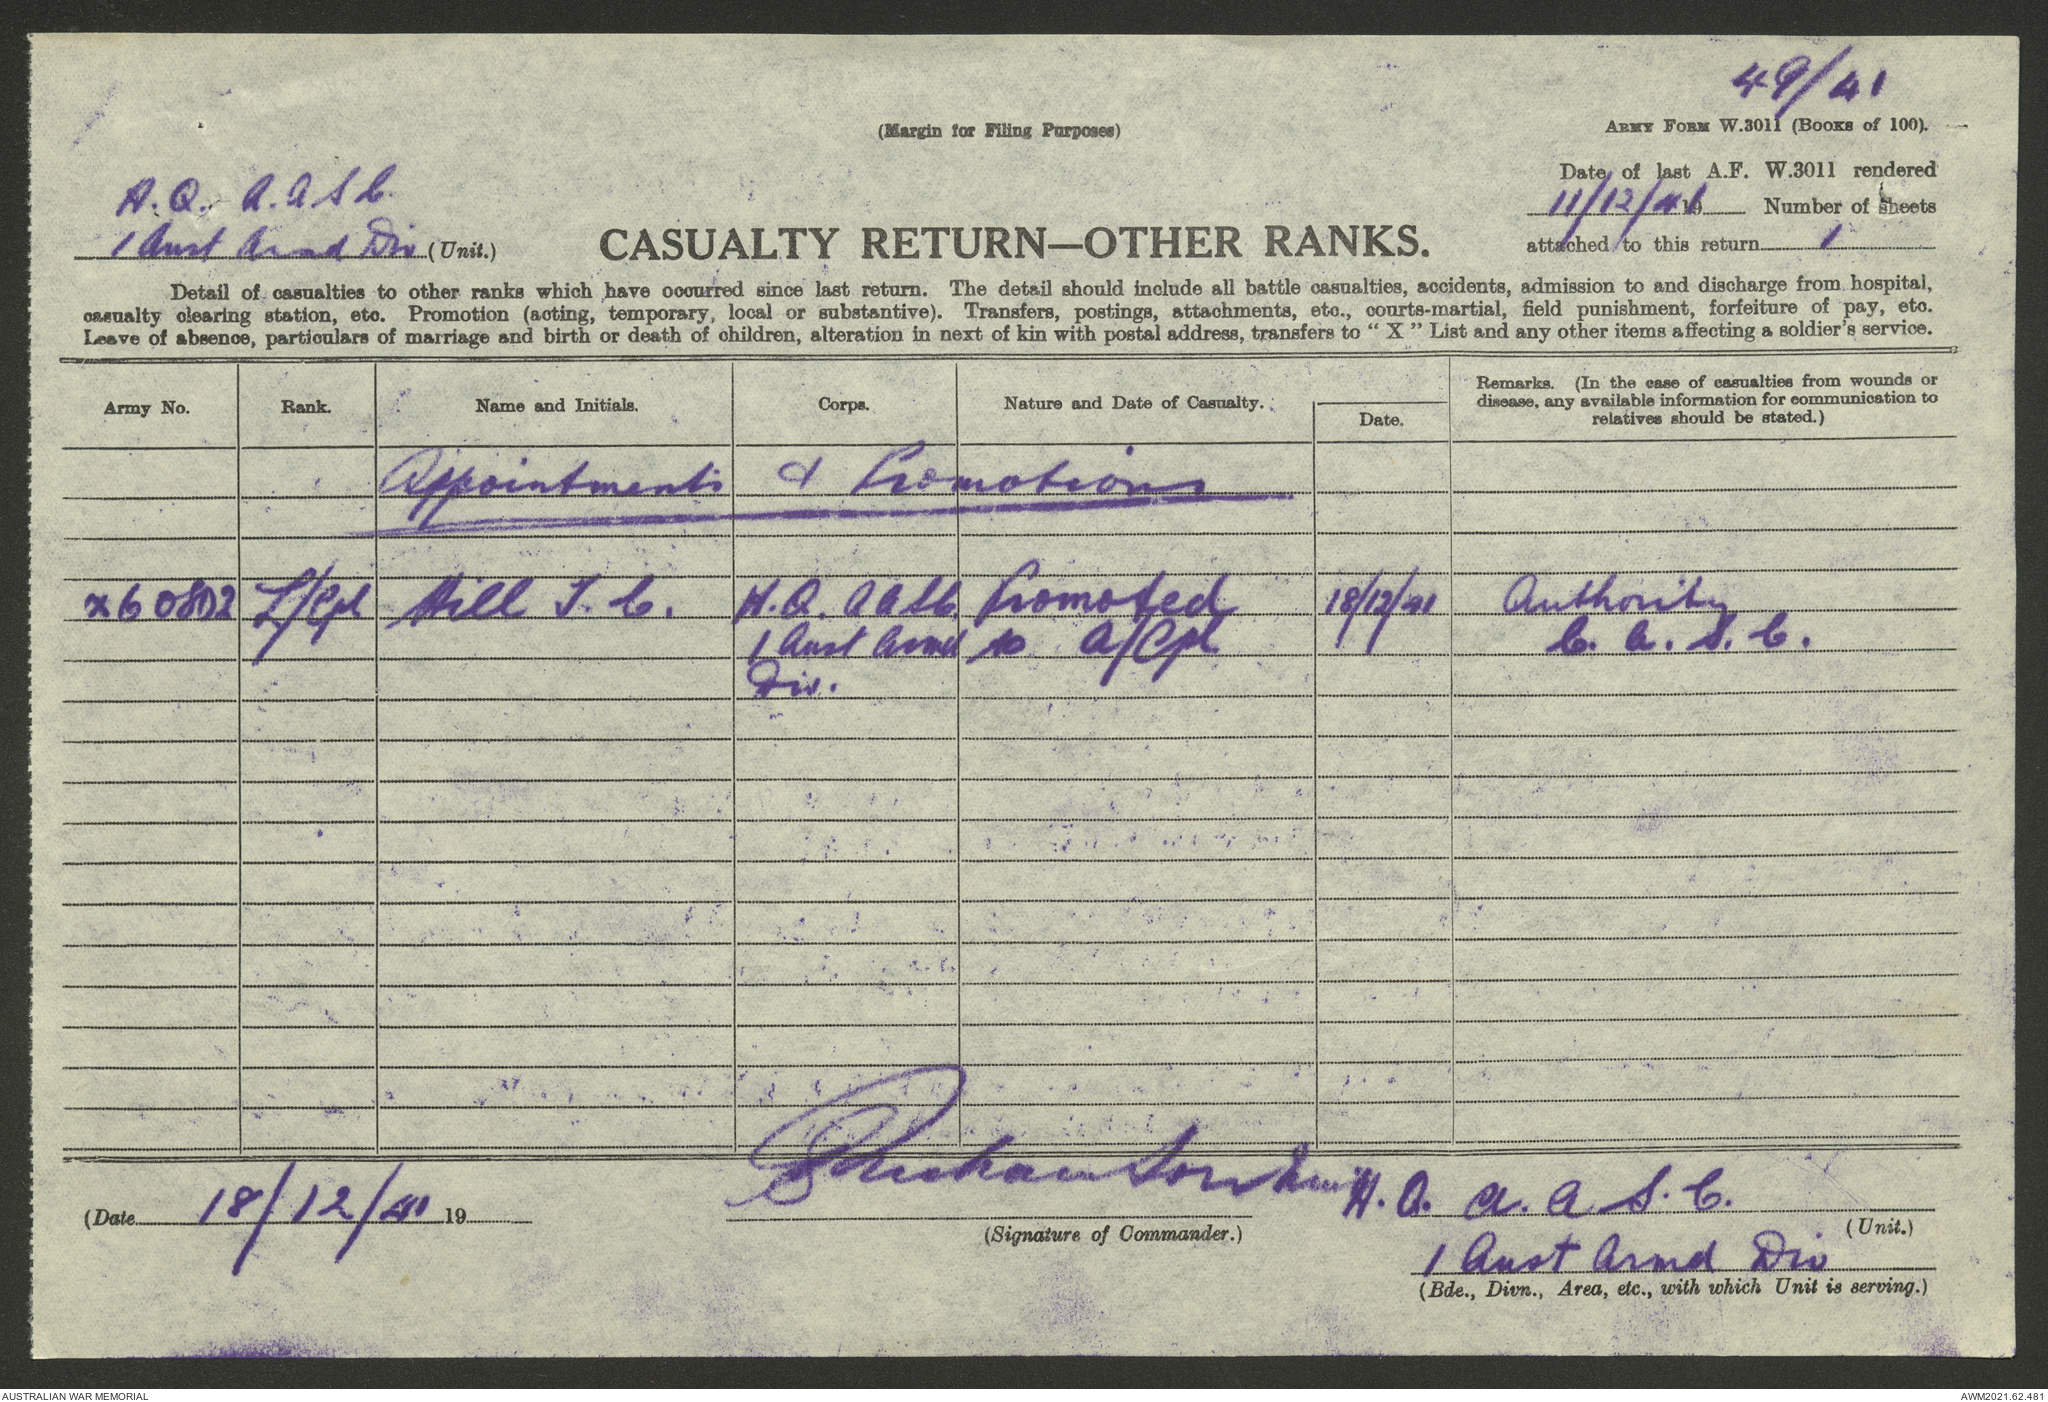 49/41
(Margin for Filing Purposes)
ARMY FORM W.3011 (Books of 100).
Date of last A.F. W.3011 rendered
11/12/41 19 Number of sheets
attached to this return 1
H.Q. A.A.S.C.
1 Aust Armd Div (Unit.)
CASUALTY RETURN—OTHER RANKS.
Detail of casualties to other ranks which have occurred since last return. The detail should include all battle casualties, accidents, admission to and discharge from hospital,
casualty clearing station, etc. Promotion (acting, temporary, local or substantive). Transfers, postings, attachments, etc., courts-martial, field punishment, forfeiture of pay, etc.
Leave of absence, particulars of marriage and birth or death of children, alteration in next of kin with postal address, transfers to "X" List and any other items affecting a soldier's service.
Army No. Rank. Name and Initials. Corps. Nature and Date of Casualty. Date.
Remarks. (In the case of casualties from wounds or
disease, any available information for communication to
relatives should be stated.)
Appointments & Promotions
L/Cpl Hill J. C. H.Q. AASC. Promoted 18/12/41 Authority
1 Aust Armd to A/Cpl C. A. S. C.
Div.
(Date 18/12/41 19
(Signature of Commander.)
H.Q. A.A.S.C.
(Unit.)
1 Aust Armd Div
(Bde., Divn., Area, etc., with which Unit is serving.)
AUSTRALIAN WAR MEMORIAL
AWM2021.62.481